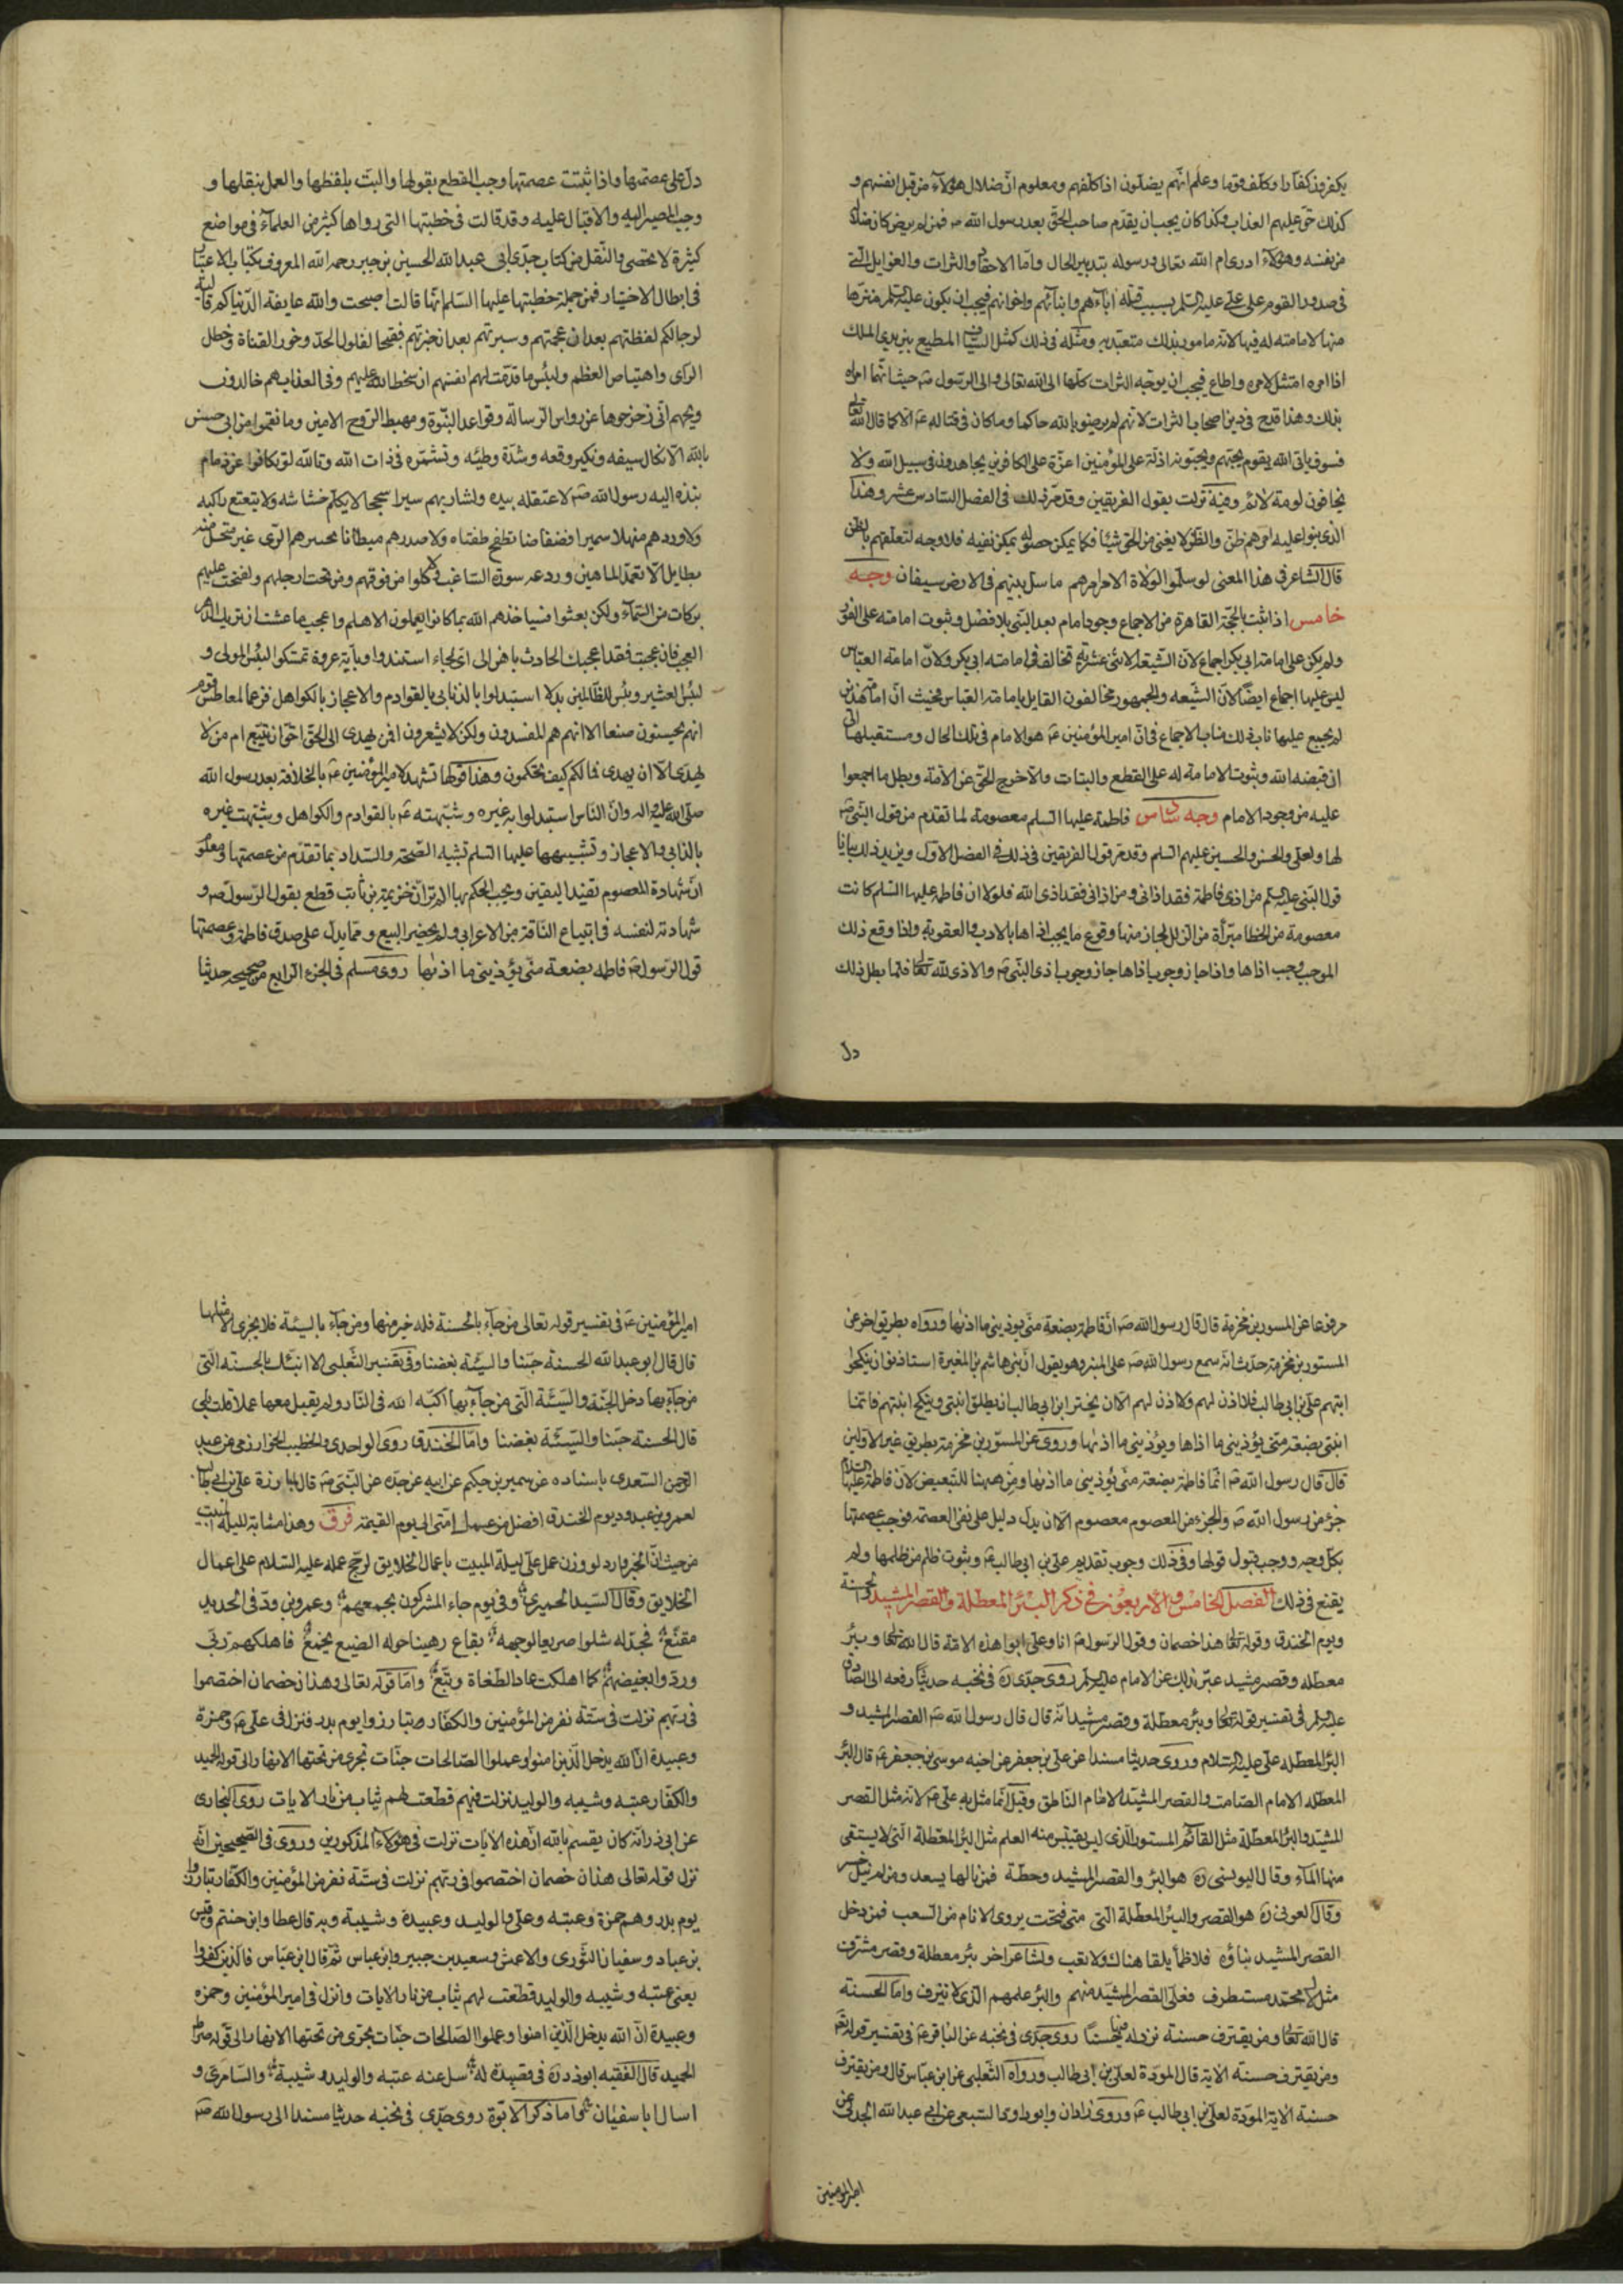 يكفر فذكفارا وكلف قوما وعلم انهم يضلون اذا كلفهم ومعلوم ان ضلال هؤلاء من قبل انفسهم و
كذلك حق عليهم العذاب فكذا كان يجب ان يقدم صاحب الحق بعد رسول الله صم فمن لم يرض كان ضلاله
من نفسه وهؤلاء ادرى ام الله تعالى ورسوله بتدبير الحال واما الاحقاد والثرات والغوايل التى
فى صدور القوم على على عليه السلم بسبب قتله اباءهم وابنائهم واخوانهم فيجب ان يكون عليه السلم منزها
منها لامامته له فيها لانه مامور بذلك متعبد به ومثله فى ذلك كمثل السياف المطيع بين يدى الملك
اذا امره امتثل لامره واطاع فيجب ان يوجه الثرات كلها الى الله تعالى والى الرسول صم حيث انهما امراه
بذلك وهذا قدح فى دين اصحاب الثرات لانهم لم يرضوا بالله حاكما وما كان فى قتاله عم الا كما قال الله تعالى
فسوف ياتى الله بقوم يحبهم ويحبونه اذلة على المؤمنين اعزة على الكافرين يجاهدون فى سبيل الله ولا
يخافون لومة لائم وفيه نزلت بقول الفريقين وقد مر ذلك فى الفصل السادس عشر وهذا
الذى بنوا عليه امرهم ظن والظن لا يغنى من الحق شيئا فكما يمكن حصوله يمكن نفيه فلا وجه لتعلقهم بالظن
قال الشاعر فى هذا المعنى لو سلموا لولاة الامر امرهم ما سل بينهم فى الارض سيفان وجه
خامس اذا ثبت بالحجة القاهرة من الاجماع وجود امام بعد النبى بلا فصل وثبوت امامته على الفور
ولم يكن على امامة ابى بكر اجماع لان الشيعة الاثنى عشرية تخالف فى امامته ابى بكر ولان امامة العباس
ليس عليها اجماع ايضا لان الشيعه والجمهور مخالفون القايل بامامة العباس فحيث ان امامة هذين
لم يجمع عليها ناب ذلك مناب الاجماع فى ان امير المؤمنين عم هو الامام فى تلك الحال ومستقبلها الى
ان قبضه الله وبثبوت الامامة له على القطع والبتات والا خرج الحق عن الامة وبطل ما اجمعوا
عليه من وجود الامام وجه سادس فاطمة عليها السلم معصومة لما تقدم من قول النبى صم
لها ولعلى والحسن والحسين عليهم السلم وقد مر قول الفريقين فى ذلك فى الفصل الاول ويزيد ذلك بيانا
قول النبى عليه السلم من اذى فاطمة فقد اذانى ومن اذانى فقد اذى الله فلولا ان فاطمة عليها السلم كانت
معصومة من الخطا مبرأة من الزلل لجاز منها وقوع ما يجب اذاها بالادب والعقوبة واذا وقع ذلك
الموجب وجب اذاها واذا جاز وجوب اذاها جاز وجوب اذى النبى صم والاذى لله تعالى فلما بطل ذلك
دل
دل على عصمتها واذا ثبتت عصمتها وجب القطع بقولها والبت بلفظها والعمل بنقلها و
وجب المصير اليه والاقبال عليه وقد قالت فى خطبتها التى رواها كثير من العلماء فى مواضع
كثيرة لا تحصى والنقل من كتاب جدى ابى عبد الله الحسين بن جبر رحمه الله المعروف بكتاب الاعتبار
فى ابطال الاختيار فمن جملة خطبتها عليها السلم انها قالت اصبحت والله عايفة الدنياكم قالية
لرجالكم لفظتهم بعد ان عجمتهم وسبرتهم بعد ان خبرتهم فقبحا لفلول الحد وخور القناة وخطل
الراى واهتياص العظم ولبئس ما قدمت لهم انفسهم ان سخط الله عليهم وفى العذاب هم خالدون
ويحهم انى زحزحوها عن رواس الرسالة وقواعد النبوة ومهبط الروح الامين وما نقموا من ابى حسن
بالله الا نكال سيفه ونكير وقعه وشدة وطئه وتشمره فى ذات الله وتالله لو تكافوا عن زمام
نبذه اليه رسول الله صم لاعتقله بيده ولسار بهم سيرا سجحا لا يكلم خشاشه ولا يتعتع راكبه
ولاوردهم منهلا سميرا فضفاضا تطفح ضفتاه ولاصدرهم مبطانا بحسرهم الرى غير متحل منه
بطايل الا تغمد الماهين وردعه سورة الساغب ولاكلوا من فوقهم ومن تحت ارجلهم ولفتحت عليهم
بركات من السماء ولكن بغوا فسياخذهم الله بما كانوا يعملون الا هلم واعجب ما عشت ان تريك الدهر
العجب فان عجبت فقد اعجبك الحادث باهر الى اى لجاء استندوا وباية عروة تمسكوا لبئس المولى و
لبئس العشير وبئس للظالمين بدلا استبدلوا بالذنابى بالقوادم والاعجاز بالكواهل فرغما لمعاطس قوم
انهم يحسنون صنعا الا انهم هم المفسدون ولكن لا يشعرون افمن يهدى الى الحق احق ان يتبع ام من لا
يهدى الا ان يهدى فما لكم كيف تحكمون وهذا قولها تشهد لامير المؤمنين عم بالخلافة بعد رسول الله
صلى الله عليه واله وان الناس استبدلوا به غيره وشبهته عم بالقوادم والكواهل وشبهت غيره
بالذنابى والاعجاز وتشبيهها عليها السلم تشبه الصحة والسداد بما تقدم من عصمتها ومعلوم
ان شهادة المعصوم تفيد اليقين ويجب الحكم بها الا ترى ان خزيمة بن ثابت قطع بقول الرسول صم و
شهادته لنفسه فى ابتياع الناقة من الاعرابى ولم يحضر البيع ومما يدل على صدق فاطمة وعصمتها
قول الرسول صم فاطمه بضعة منى يؤذينى ما اذاها روى مسلم فى الجزء الرابع من صحيحه حديثا
مرفوعا عن المسور بن مخرمة قال قال رسول الله صم ان فاطمة بضعة منى يوذينى ما اذاها ورواه بطريق اخر عن
المستور بن مخرمة حدث انه سمع رسول الله صم على المنبر وهو يقول ان بنى هاشم بن المغيرة استاذنوا ان ينكحوا
ابنتهم على بن ابى طالب فلا اذن لهم ولا اذن لهم الا ان يختر ابن ابى طالب ان يطلق ابنتى وينكح ابنتهم فانما
ابنتى بضعة منى يؤذينى ما اذاها ويؤذينى ما اذاها وروى عن المسور بن مخرمة بطريق غير الاولين
قال قال رسول الله صم انما فاطمة بضعة منى يؤذينى ما اذاها ومن ههنا للتبعيض لان فاطمة عليها السلام
جزء من رسول الله صم والجزء من المعصوم معصوم الا ان يدل دليل على نفى العصمة فوجب عصمتها
بكل وجه ووجب قبول قولها وفى ذلك وجوب تقديم على بن ابى طالب عم وثبوت ظلم من ظلمها ولم
يقنع فى ذلك الفصل الخامس والاربعون فى ذكر البئر المعطلة والقصر المشيد والحسنة
ويوم الخندق وقوله تعالى هذا خصمان وقول الرسول صم انا وعلى ابوا هذه الامة قال الله تعالى وبئر
معطلة وقصر مشيد عبر بذلك عن الامام عليه السلم روى جدى ره فى نخبه حديثا رفعه الى الصادق
عليه السلم فى تفسير قوله تعالى وبئر معطلة وقصر مشيد انه قال قال رسول الله صم القصر المشيد و
البئر المعطلة على عليه السلام وروى حديثا مسندا عن على بن جعفر عن اخيه موسى بن جعفر عم قال البئر
المعطله الامام الصامت والقصر المشيد الامام الناطق وقيل انما مثل به على عم لانه مثل القصر
المشيد والبئر المعطلة مثل القائم المستور الذى ليس يقتبس منه العلم مثل البئر المعطلة التى لا يستقى
منها الماء وقال البوسنى ره هو البئر والقصر المشيد وحطة فمن نالها يسعد ومن لم ينل خسر
وقال العونى ره هو القصر والبئر المعطلة التى متى فتحت يروى الانام من السعب فمن دخل
القصر المشيد بناؤه فلا ظمأ يلقا هناك ولا تعب ولشاعر اخر بئر معطلة وقصر مشرف
مثل لال محمد مستطرف فعلى القصر المشيد منهم والبئر علمهم الذى لا ينزف واما الحسنة
قال الله تعالى ومن يقترف حسنة نزد له فيها حسنا روى جدى فى نخبه عن الباقر عم فى تفسير قوله تعالى
ومن يقترف حسنة الاية قال المودة لعلى بن ابى طالب ورواه الثعلبى عن ابن عباس قال ومن يقترف
حسنة الاية المودة لعلى بن ابى طالب عم وروى زاذان وابو داود السبيعى عن ابى عبد الله الجدلى عن
امير المؤمنين
امير المؤمنين عم فى تفسير قوله تعالى من جاء بالحسنة فله خير منها ومن جاء بالسيئة فلا يجزى الا مثلها
قال قال ابو عبد الله الحسنة حبنا والسيئة بغضنا وفى تفسير الثعلبى الا انبئك بالحسنة التى
من جاء بها دخل الجنة والسيئة التى من جاء بها اكبه الله فى النار ولم يقبل معها عملا قلت بلى
قال الحسنة حبنا والسيئة بغضنا واما الخندق روى الواحدى والخطيب الخوارزمى عن عبد
الرحمن السعدى باسناده عن سمير بن حكيم عن ابيه عن جده عن النبى صم قال لمبارزة على بن ابى طالب
لعمرو بن عبد ود يوم الخندق افضل من عمل امتى الى يوم القيمة فرق وهذا مشابه لليلة المبيت
من حيث ان الخبر وارد لو وزن عمل على ليلة المبيت باعمال الخلايق لرجح عمله عليه السلام على اعمال
الخلايق وقال السيد الحميرى وفى يوم جاء المشركون بجمعهم وعمرو بن ود فى الحديد
مقنع فجدله شلوا صريعا لوجهه بقاع رهينا حوله الضبع يخمع فاهلكهم ربى
وردوا بغيضهم كما اهلكت عاد الطغاة وتبع واما قوله تعالى وهذان خصمان اختصموا
فى ربهم نزلت فى ستة نفر من المؤمنين والكفار صتبارزوا يوم بدر فنزل فى على عم وحمزة
وعبيدة ان الله يدخل الذين امنوا وعملوا الصالحات جنات تجرى من تحتها الانهار الى قوله الحميد
والكفار عتبه وشيبه والوليد نزلت فيهم قطعت لهم ثياب من نار الايات روى البخارى
عن ابى ذر انه كان يقسم بالله ان هذه الايات نزلت فى هؤلاء المذكورين وروى فى الصحيحين انه
نزل قوله تعالى هذان خصمان اختصموا فى ربهم نزلت فى ستة نفر من المؤمنين والكفار تبارزوا
يوم بدر وهم حمزة وعتبه وعلى والوليد وعبيدة وشيبة وبه قال عطا وابن خثيم وقيس
بن عباد وسفيان الثورى والاعمش وسعيد بن جبير وابن عباس ثم قال ابن عباس فالذين كفروا
يعنى عتبه وشيبه والوليد قطعت لهم ثياب من نار الايات وانزل فى امير المؤمنين وحمزه
وعبيدة ان الله يدخل الذين امنوا وعملوا الصالحات جنات تجرى من تحتها الانهار الى قوله صراط
الحميد قال الفقيه ابو ذر ره فى قصيدة له سل عنه عتبه والوليد وشيبة والسامرى و
اسال ابا سفيان واما ذكر الابوة روى جدى فى نخبه حديثا مسندا الى رسول الله صم